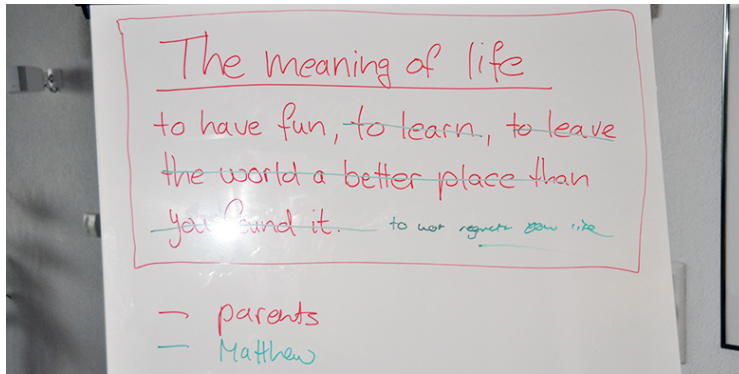 The meaning of life
to have fun, to learn, to leave
the world a better place than
you found it. to not regret your life
— parents
— Matthew